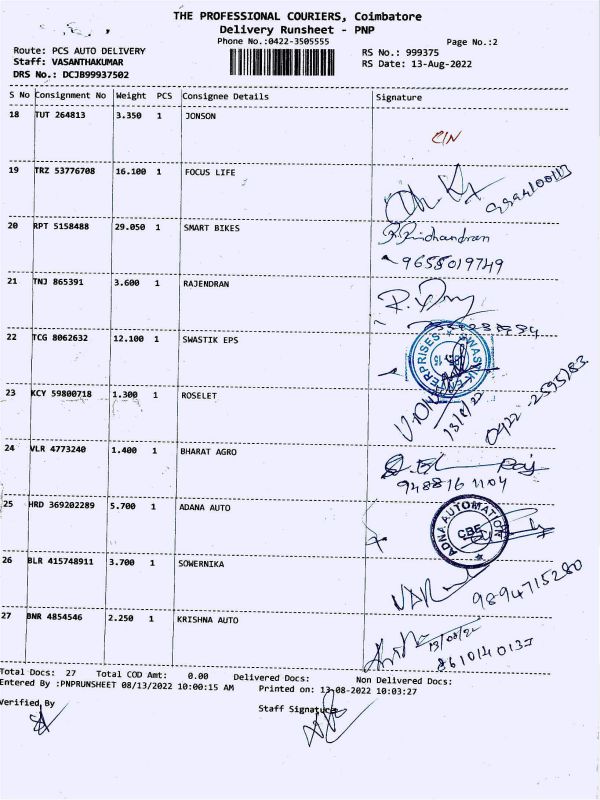 THE PROFESSIONAL COURIERS, Coimbatore
Delivery Runsheet - PNP
Phone No.:0422-3505555
Page No.:2
Route: PCS AUTO DELIVERY
RS No.: 999375
Staff: VASANTHAKUMAR
RS Date: 13-Aug-2022
DRS No.: DCJB99937502
S No Consignment No Weight PCS Consignee Details Signature
18 TUT 264813 3.350 1 JONSON
19 TRZ 53776708 16.100 1 FOCUS LIFE
20 RPT 5158488 29.050 1 SMART BIKES
9658019749
21 TNJ 865391 3.600 1 RAJENDRAN
22 TCG 8062632 12.100 1 SWASTIK EPS
SWASTIK ENTERPRISES
23 KCY 59800718 1.300 1 ROSELET
13/8/22
0422-2595183
24 VLR 4773240 1.400 1 BHARAT AGRO
9488161104
25 HRD 369202289 5.700 1 ADANA AUTO
ADNA AUTOMATION
CBE
26 BLR 415748911 3.700 1 SOWERNIKA
9894715280
27 BNR 4854546 2.250 1 KRISHNA AUTO
13/08/22
Total Docs: 27 Total COD Amt: 0.00 Delivered Docs: Non Delivered Docs:
Entered By :PNPRUNSHEET 08/13/2022 10:00:15 AM Printed on: 13-08-2022 10:03:27
Verified By
Staff Signature